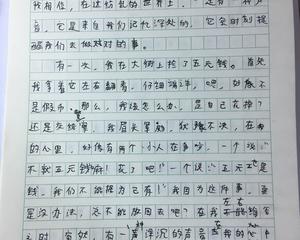 我相信，在这纷乱的世界上，一定有一种声
音，它是来自我们记忆深处的，它会时刻提
醒我们去做对的事。
有一次，我在大街上捡了五元钱。首先
我拿着它左右翻看，仔细端详，吧，好像不
是假币。那么，我该怎么办，是自己去掉？
还是交给警 我眉头紧皱，犹豫不决，在我
的心里，好像有两个小人在争吵，一个说：
不就五元钱嘛！花了吧！一个说：五元也是
钱，我们不能据为己有！我因为这件事，
是没办法，总不能放回去吧？在我左右
之时，突然，有一神浑沉的声音